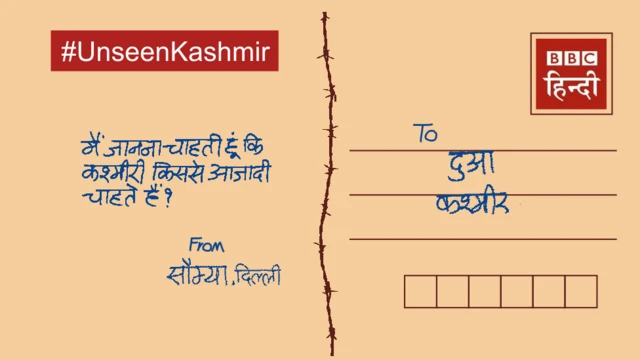 #UnseenKashmir
BBC
हिन्दी
मैं जानना चाहती हूं कि
कश्मीरी किससे आजादी
चाहते हैं?
From
सौम्या, दिल्ली
To
दुआ
कश्मीर